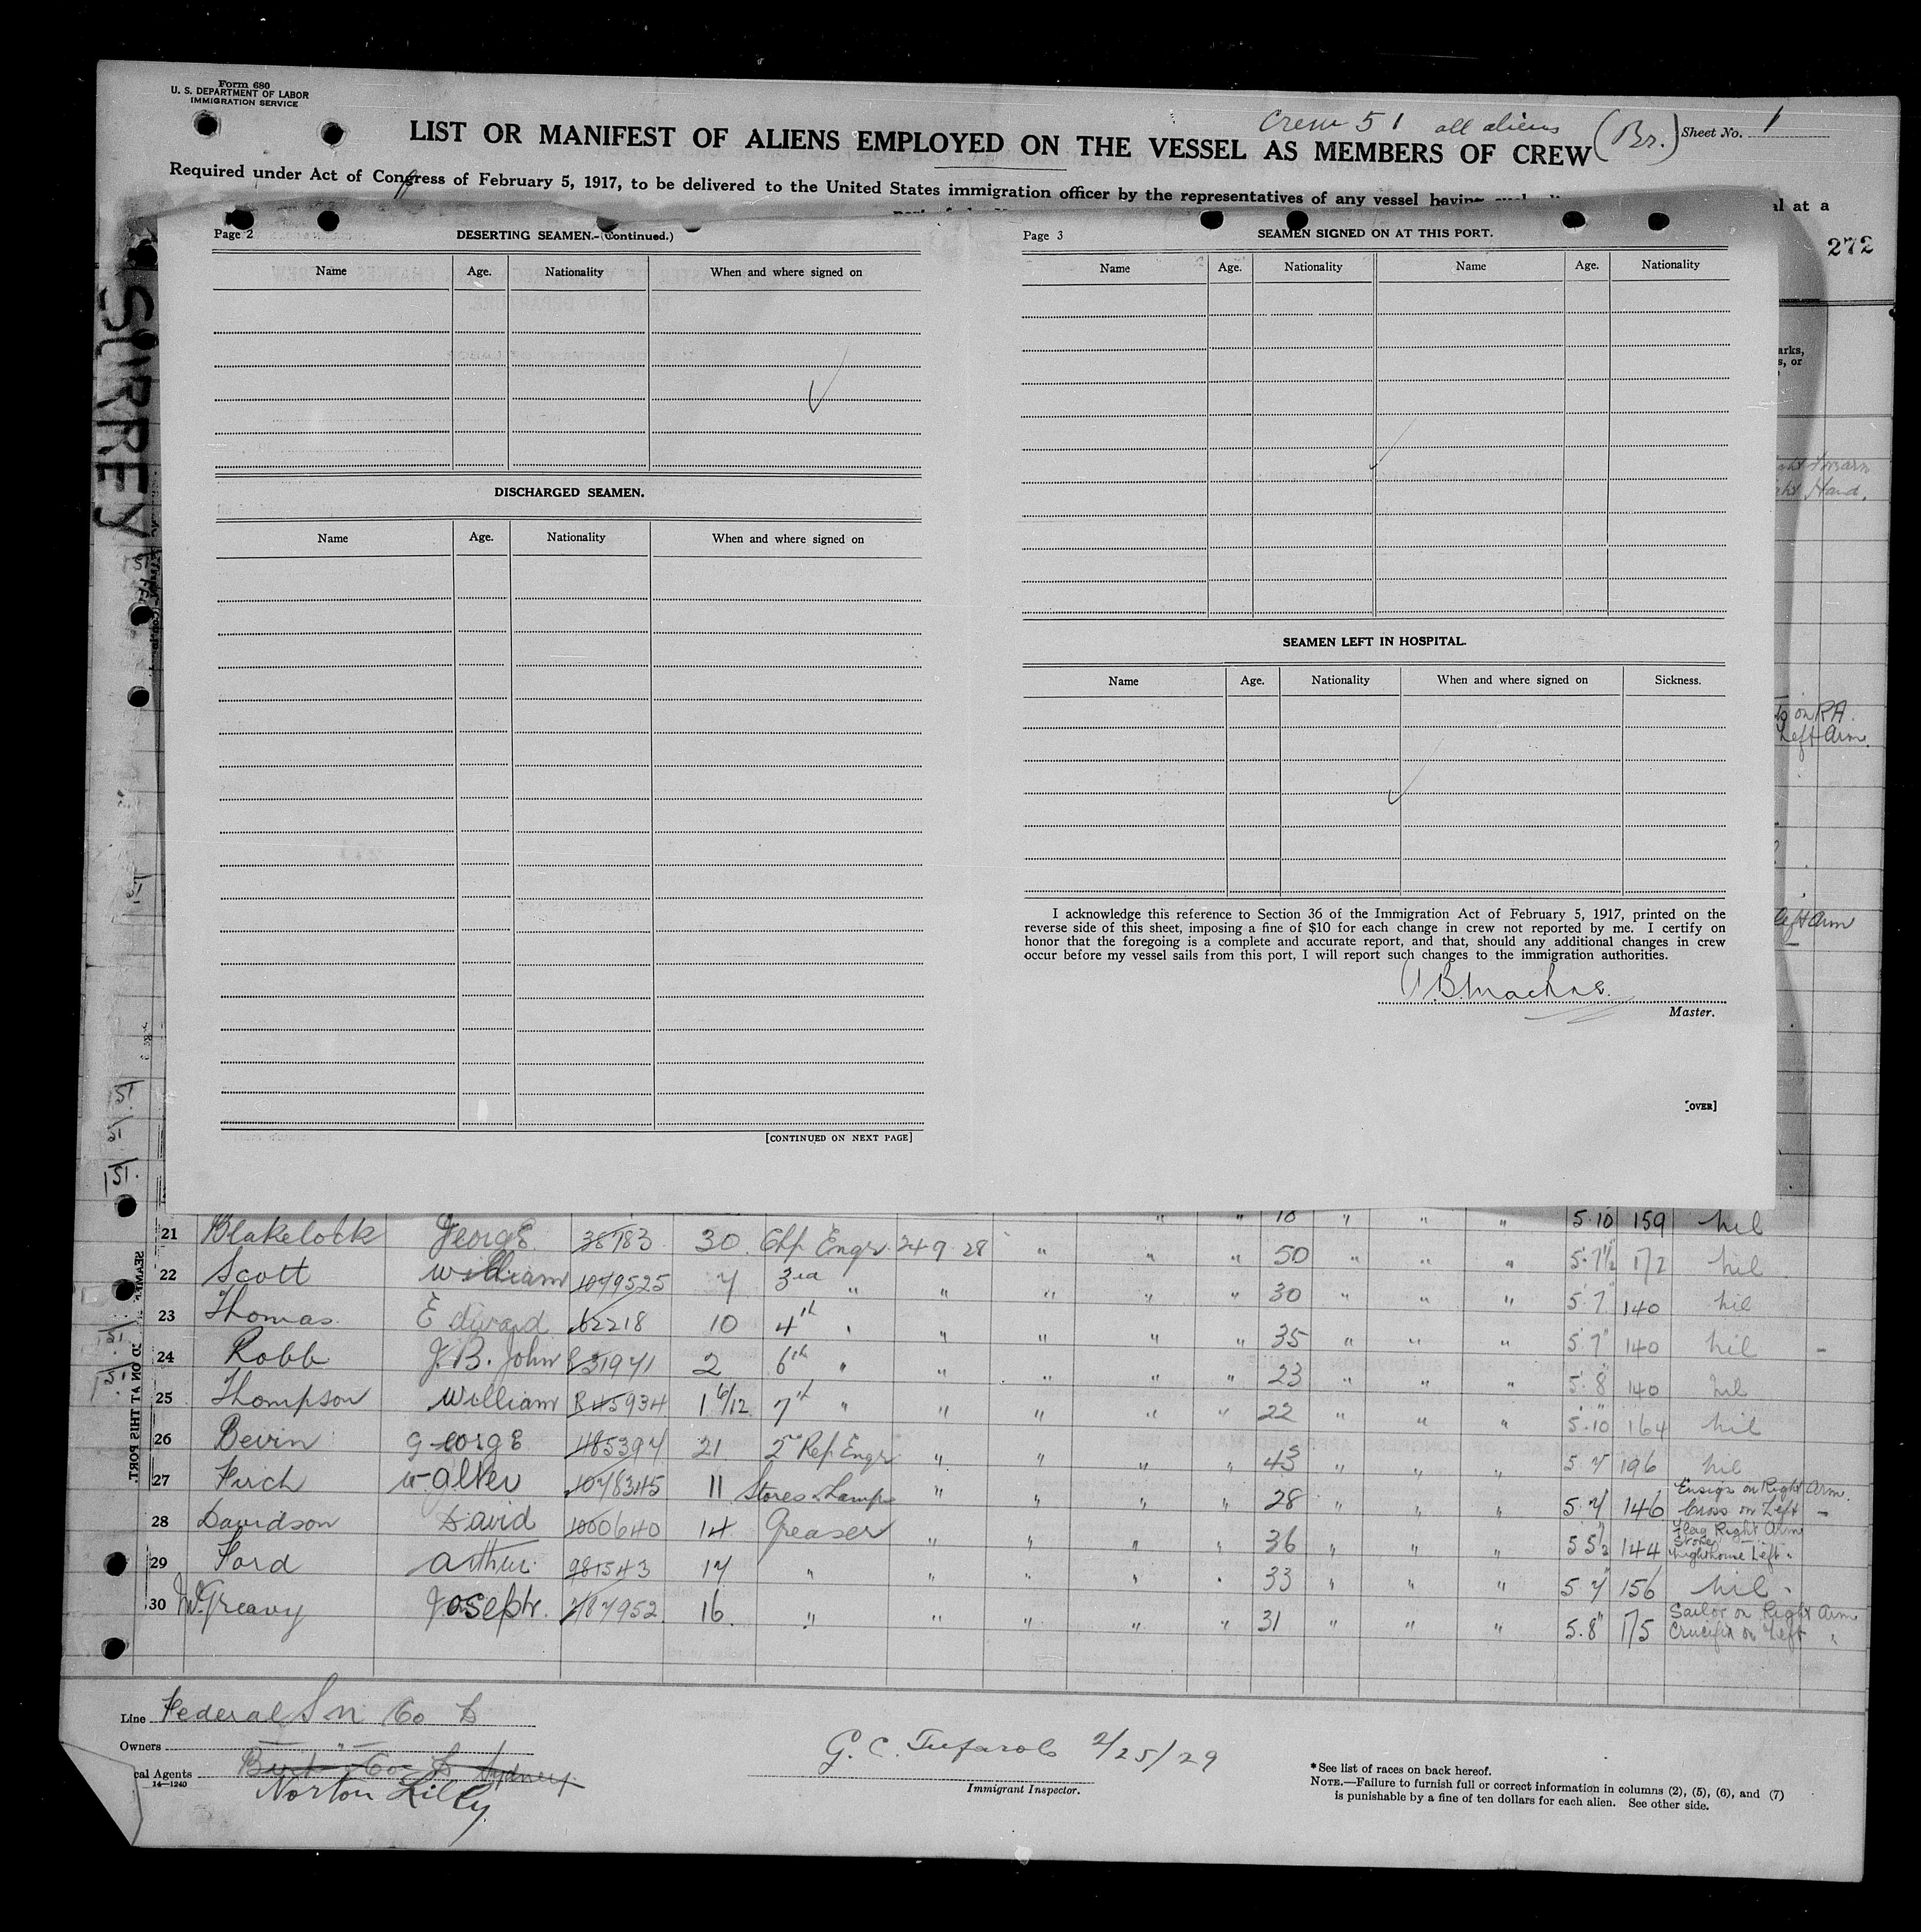 Form 680
U. S. DEPARTMENT OF LABOR
IMMIGRATION SERVICE
Crew 51 all aliens (Br.) Sheet No. 1
LIST OR MANIFEST OF ALIENS EMPLOYED ON THE VESSEL AS MEMBERS OF CREW
Required under Act of Congress of February 5, 1917, to be delivered to the United States immigration officer by the representatives of any vessel having
al at a
272
SURREY
Page 2 DESERTING SEAMEN.-(Continued.)
Name Age. Nationality When and where signed on
DISCHARGED SEAMEN.
Name Age. Nationality When and where signed on
[CONTINUED ON NEXT PAGE]
Page 3 SEAMEN SIGNED ON AT THIS PORT.
Name Age. Nationality Name Age. Nationality
SEAMEN LEFT IN HOSPITAL.
Name Age. Nationality When and where signed on Sickness.
I acknowledge this reference to Section 36 of the Immigration Act of February 5, 1917, printed on the
reverse side of this sheet, imposing a fine of $10 for each change in crew not reported by me. I certify on
honor that the foregoing is a complete and accurate report, and that, should any additional changes in crew
occur before my vessel sails from this port, I will report such changes to the immigration authorities.
Master.
[OVER]
arks,
s, or
Hand.
on RA.
Left Arm.
Left Arm
" " 18 " " " 5.10 159 nil
21 Blakelock George 38783 30 Chf Engr. 24 9 28 " " " 50 " " " 5.7½ 172 nil
22 Scott William 1079525 7 3rd " " " " " 30 " " " 5.7" 140 nil
23 Thomas Edward 62218 10 4th " " " " " 35 " " " 5.7" 140 nil -
24 Robb J.B. John 31971 2 6th " " " " " 23 " " " 5.8" 140 nil
25 Thompson William R 45934 1 6/12 7th " " " " " 22 " " " 5.10" 164 nil
26 Bevin George 485397 21 2nd Ref Engr " " " " 43 " " " 5.7 196 nil
27 Firch Walter 1078345 11 Stores & Lamps " " " " 28 " " " 5.7" 146 Ensign on Right Arm.
Cross on Left -
28 Davidson David 1000640 14 Greaser " " " " 36 " " " 5 5½ 144 Flag Right Arm
Lighthouse Left "
29 Ford Arthur 981543 17 " " " " " 33 " " " 5 7" 156 nil -
30 McGreavy Joseph 787952 16 " " " " " 31 " " " 5.8" 175 Sailor on Right Arm
Crucifix on Left "
Line Federal S n Co Ld
Owners — " —
cal Agents Co Ld Sydney
14—1240
Norton Lilly
G. C. Tufarolo 2/25/29
Immigrant Inspector.
*See list of races on back hereof.
NOTE.—Failure to furnish full or correct information in columns (2), (5), (6), and (7)
is punishable by a fine of ten dollars for each alien. See other side.